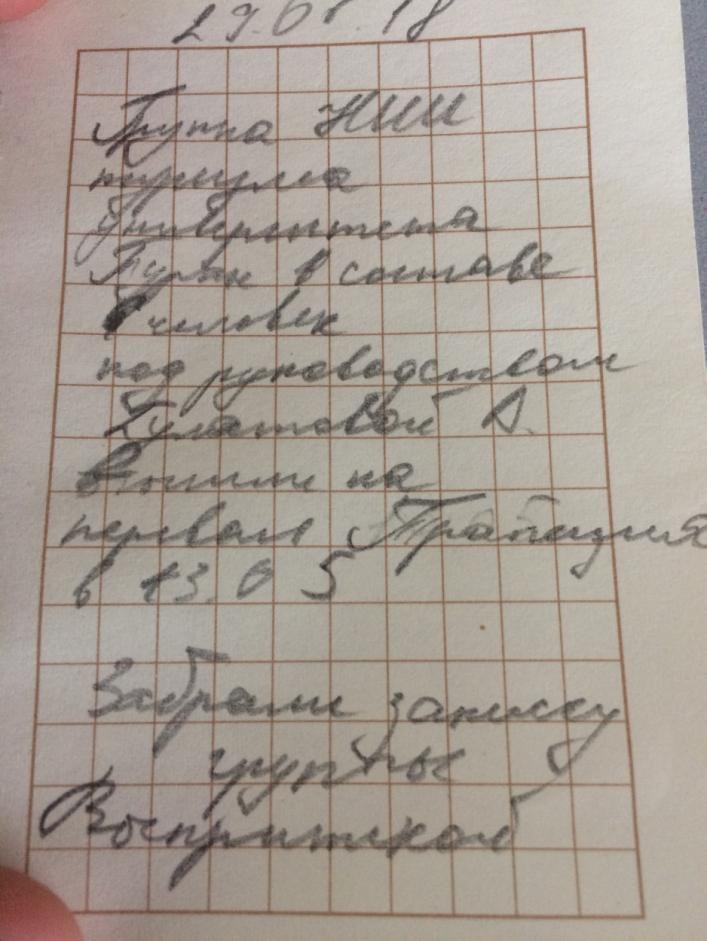 29.08.18
Группа НИИ
туризма
Университета
Туран в составе
8 человек
под руководством
Булатовой А.
вышли на
перевал Трапеция
в 13.05
Забрали записку
группы